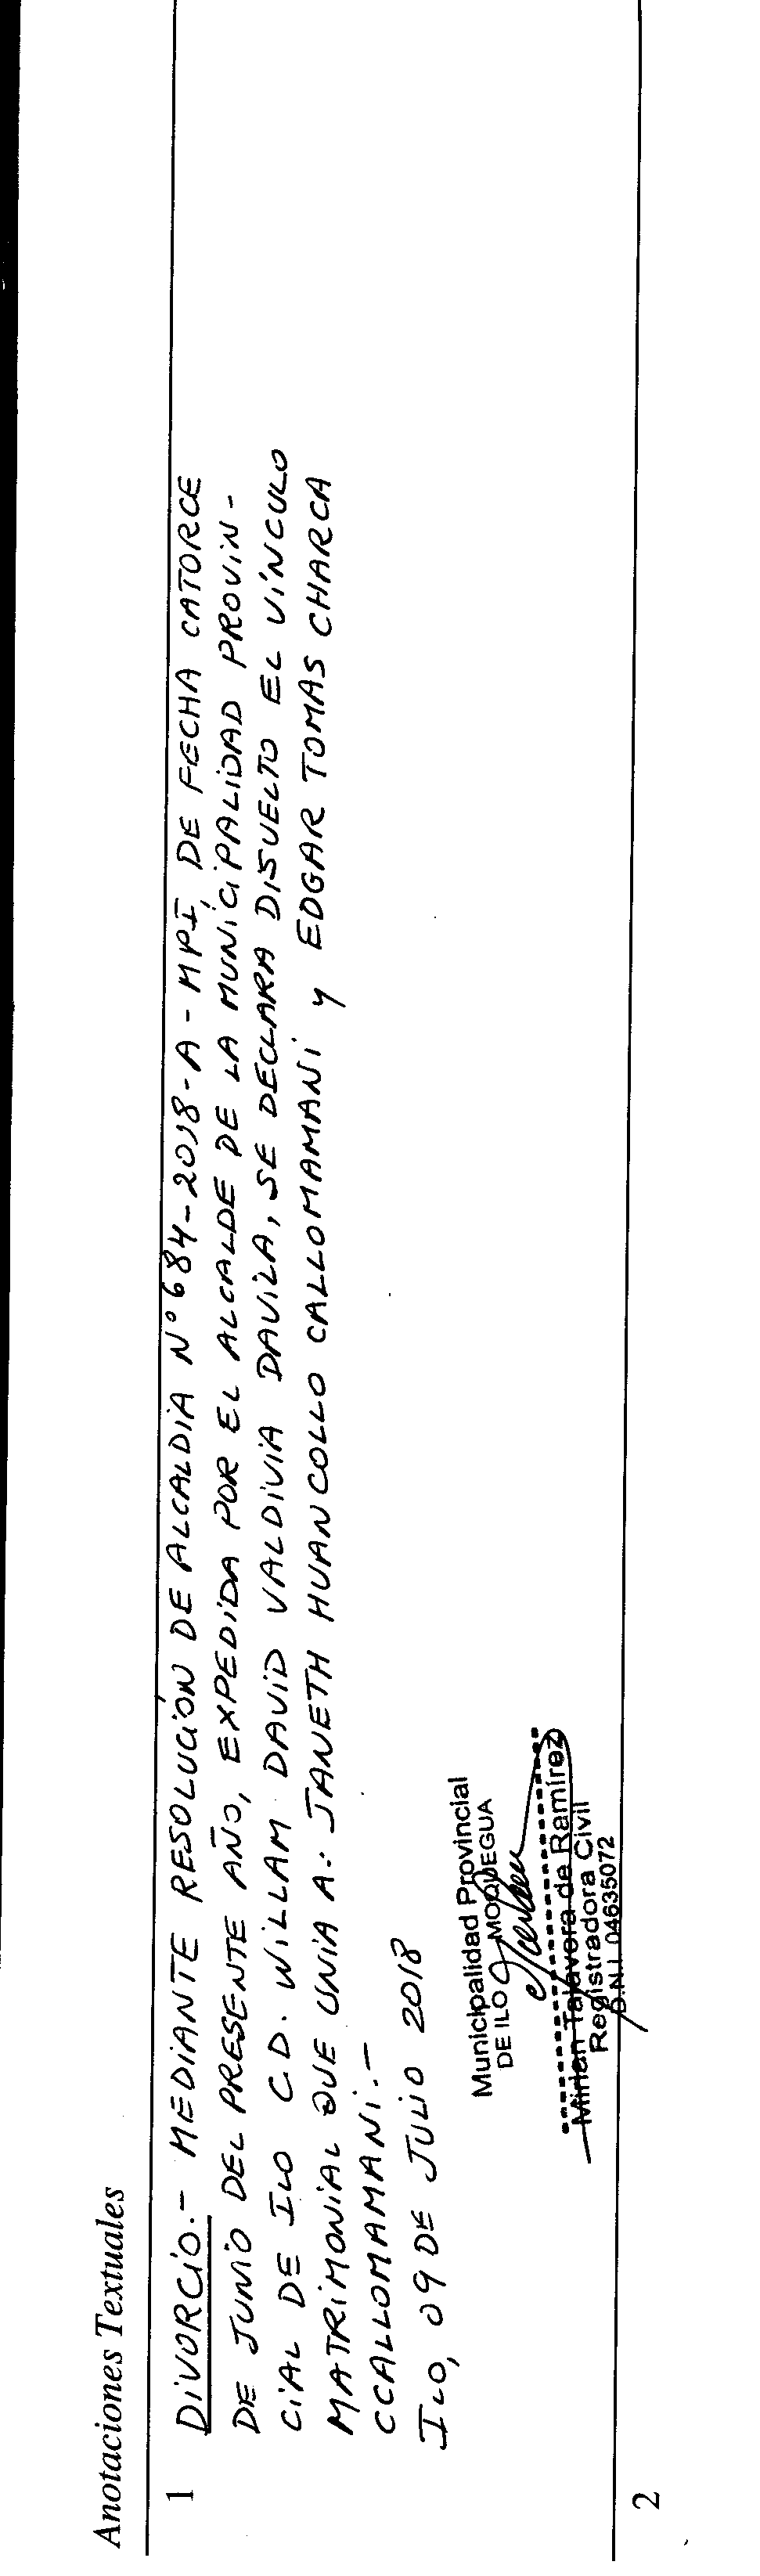 Anotaciones Textuales
1 DIVORCIO.- MEDIANTE RESOLUCIÓN DE ALCALDIA N° 684-2018-A-MPI, DE FECHA CATORCE
DE JUNIO DEL PRESENTE AÑO, EXPEDIDA POR EL ALCALDE DE LA MUNICIPALIDAD PROVIN-
CIAL DE ILO C.D. WILLAM DAVID VALDIVIA DAVILA, SE DECLARA DISUELTO EL VÍNCULO
MATRIMONIAL QUE UNIA A: JANETH HUANCOLLO CALLOMAMANI y EDGAR TOMAS CHARCA
CCALLOMAMANI.-
ILO, 09 DE JULIO 2018
Municipalidad Provincial
DE ILO MOQUEGUA
Mirian Talavera de Ramírez
Registradora Civil
D.N.I. 04635072
2